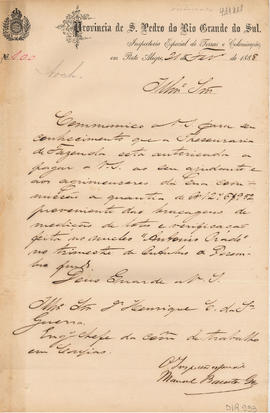 Provincia de S. Pedro do Rio Grande do Sul.
Inspectoria Especial de Terras e Colonisação,
em Porto Alegre, 21 de de 1888
Illmo Snr
Communico a V. S. para seu
conhecimento que a Thesouraria
de Fazenda está autorisada a
pagar a V. S. ao seu ajudante e
aos agrimensores da sua com-
missão a quantia de
proveniente das
medição de lotes e verificação
feita no nucleo "Antonio Prado"
no trimestre de Outubro a Dezem-
bro
Deus Guarde a V. S.
Illmo Snr Dr Henrique C. da Sa
Guerra.
Engo Chefe da Com de trabalho
em Caxias
O Inspector especial
Manoel